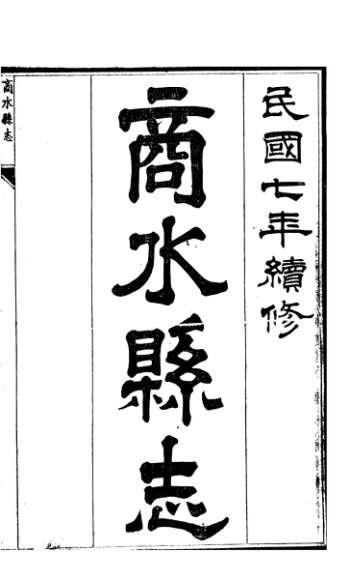 民國七年續修
商水縣志
商水縣志